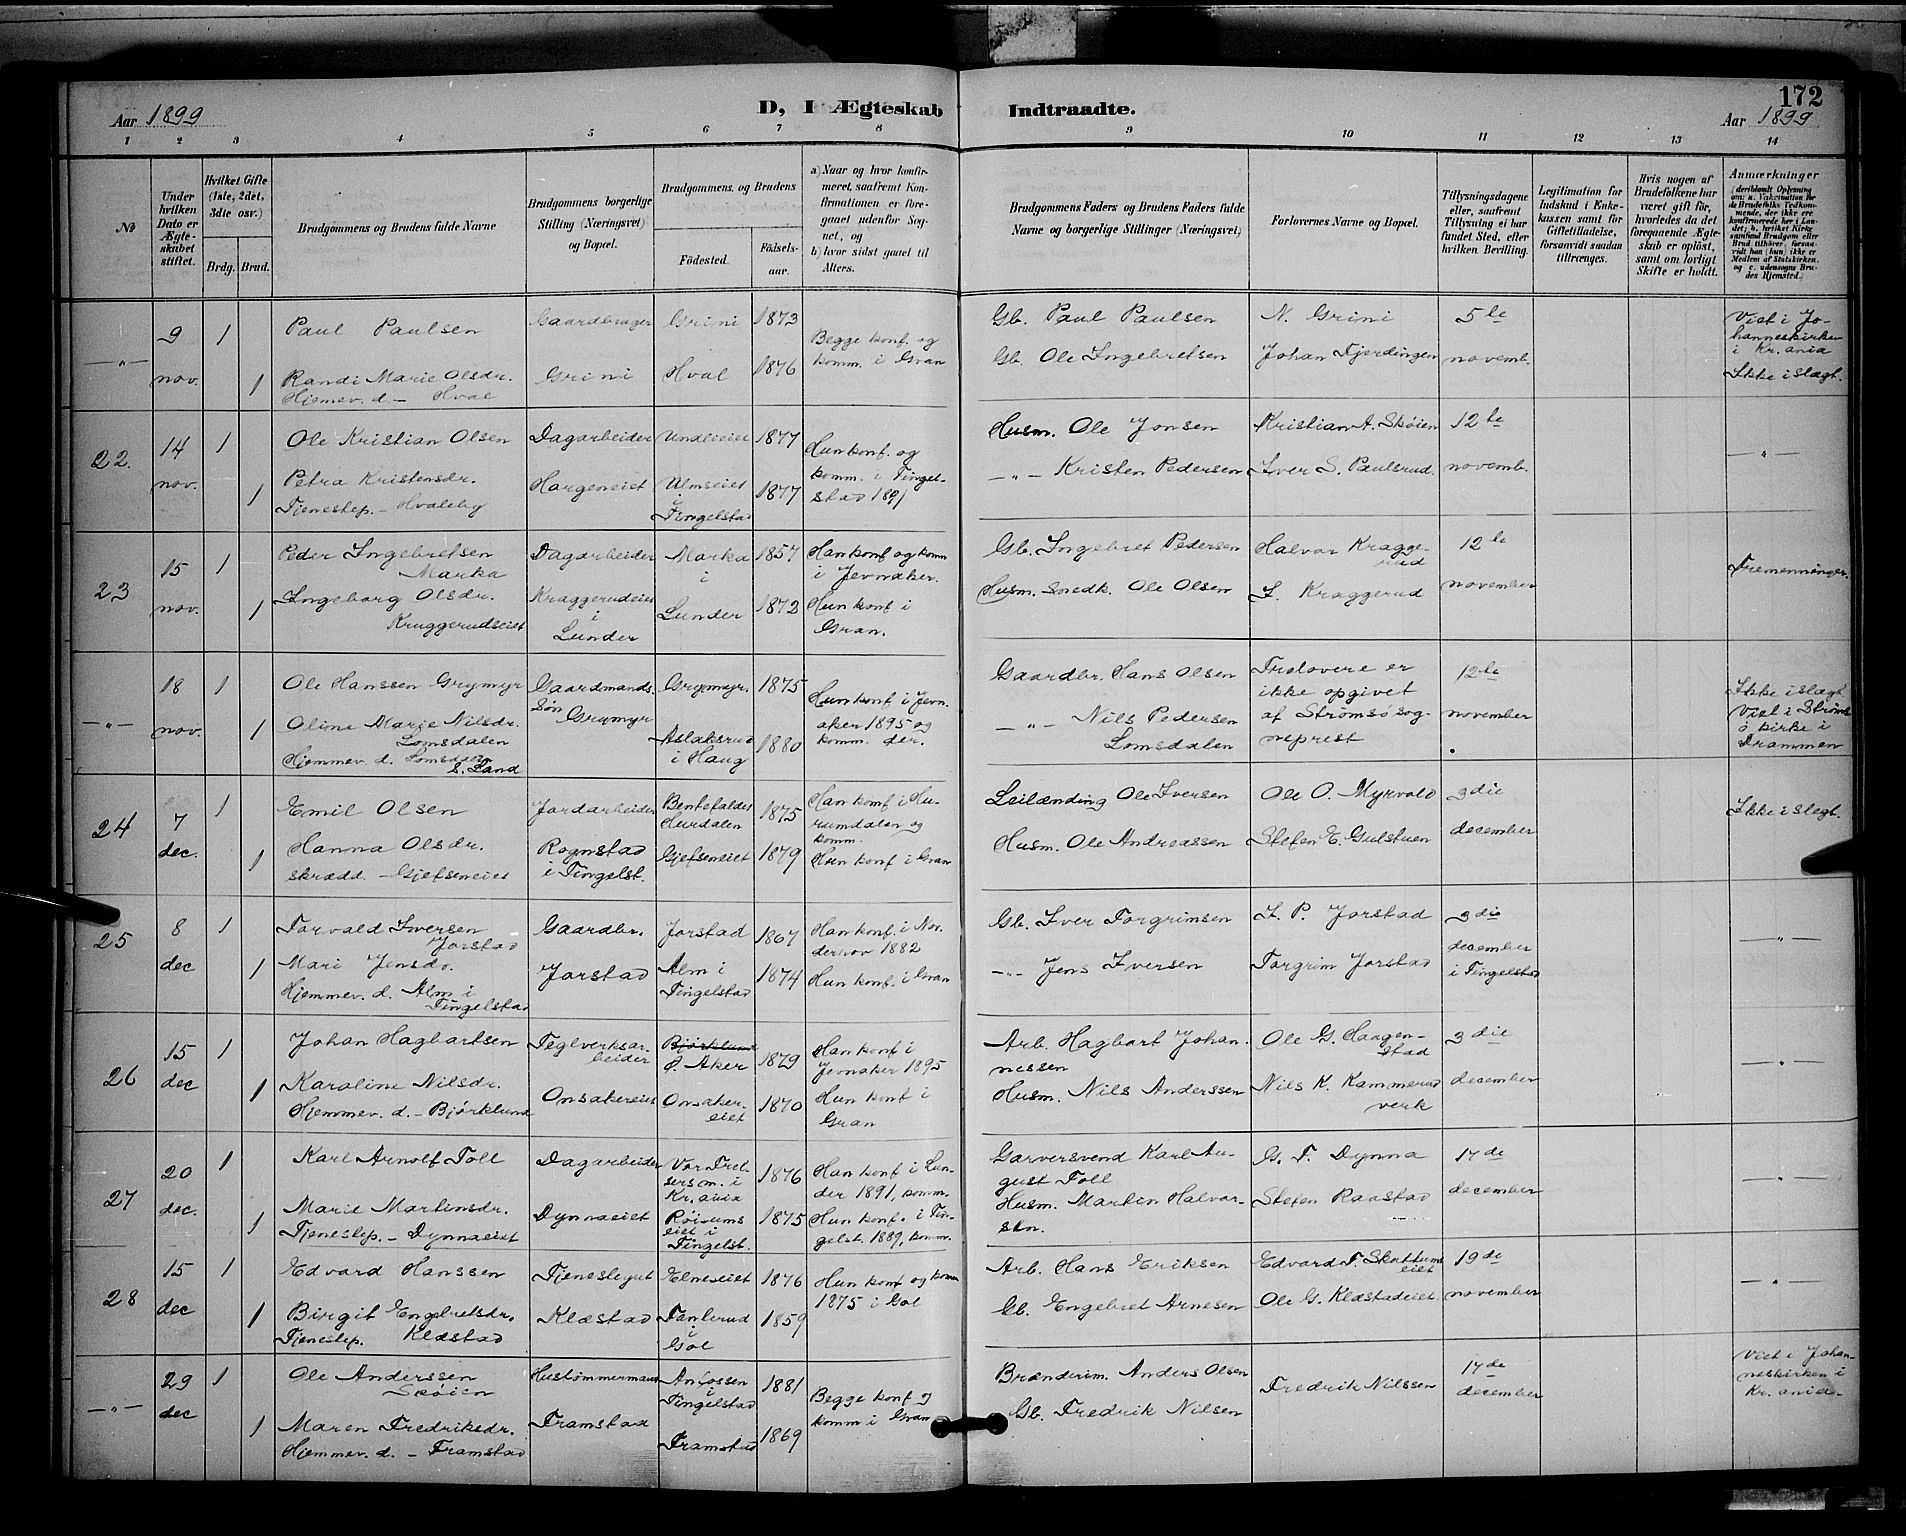 172
Aar 1899
D, I Ægteskab Indtraadte.
Aar 1899
1 2 3 4 5 6 7 8 9 10 11 12 13 14
№
Under hvilken Dato er Ægteskabet stiftet.
Hvilket Gifte (1ste, 2det, 3die osv.)
Brdg. Brud.
Brudgommens og Brudens fulde Navne
Brudgommens borgerlige Stilling (Næringsvei) og Bopæl.
Brudgommens og Brudens
Fødested. Fødselsaar.
a) Naar og hvor konfirmeret, saafremt Konfirmationen er foregaaet udenfor Sognet, og
b) hvor sidst gaaet til Alters.
Brudgommens Faders og Brudens Faders fulde Navne og borgerlige Stillinger (Næringsvei)
Forlovernes Navne og Bopæl.
Tillysningsdagene eller, saafremt Tillysning ei har fundet Sted, efter hvilken Bevilling.
Legitimation for Indskud i Enkekassen samt for Giftetilladelse, forsaavidt saadan tiltrænges.
Hvis nogen af Brudefolkene har været gift før, hvorledes da det foregaaende Ægteskab er opløst, samt om lovligt Skifte er holdt.
Anmærkninger
(deriblandt Oplysning om: a. Vakcination for de Brudefolks Vedkommende, der ikke ere konfirmerede her i Landet; b. hvilket Kirkesamfund Brudgom eller Brud tilhører, forsaavidt han (hun) ikke er Medlem af Statskirken, og c. udensogns Brudes Hjemsted.)
—"—
9 nov.
1
1
Paul Paulsen
Randi Marie Olsdr.
Hjemev. d. – Hval
Gaardbruger
Grini
Grini 1873
Hval 1876
Begge konf. og
komm. i Gran
Gb. Paul Paulsen
Gb. Ole Ingebretsen
N. Grini
Johan Fjerdingen
5te
novemb.
Viet i Jo-
hanneskirken
i Kr.ania
Ikke i slægt.
22.
14 nov.
1
1
Ole Kristian Olsen
Petra Kristensdr.
Tjenestep. – Hvaleby
Dagarbeider
Hargeneiet
Undlieiet 1877
Ulmseiet 1877
i
Tingelstad
Hun konf. og
komm. i Tingel-
stad 1891
Husm. Ole Jonsen
—"— Kristen Pedersen
Kristian A. Skøien
Iver S. Paulsrud.
12te
novemb.
—"—
23
15 nov.
1
1
Peder Ingebretsen
Marka
Ingeborg Olsdr.
Kraggerudseiet
Dagarbeider
Kraggerudeiet
i
Lunder
Marka 1857
i
Lunder 1872
Han konf og komm
i Jevnaker.
Hun konf i
Gran.
Gb. Ingebret Pedersen
Husm. Snedk. Ole Olsen
Halvor Kragge-
rud
I. Kraggerud
12te
november
Fremenninger.
—"—
18 nov.
1
1
Ole Hanssen Grymyr
Oline Marie Nilsdr.
Lomsdalen
Hjemmev. d. Lomsdalen
S. Land
Gaardmands.
søn
Grymyr
Grymyr. 1875
Aslaksrud 1880
i Haug
Hun konf. i Jevn.
aker 1895 og
komm. der.
Gaardbr. Hans Olsen
—"— Nils Pedersen
Lomsdalen
Trolovere er
ikke opgivet
af Strømsø sog-
neprest
12te
november
Ikke i slægt
Viet i Strøms
ø kirke i
Drammen
24
7
dec.
1
1
Emil Olsen
Hanna Olsdr.
skrædd. – Gjefseneiet
Jordarbeider
Rognstad
i Tingelst.
Hurdalen 1875
Gjefseneiet 1879
Han konf i Hu-
rumdalen og
komm.
Hun konf i Gran
Leilænding Ole Iversen
Husm. Ole Andreassen
Ole O. Myrvold
Stefen E. Gulstuen
3die
december
Ikke i slegt.
25
8
dec
1
1
Torvald Iversen
Jorstad
Mari Jensdr.
Hjemmev. d. Alm i
Tingelstad
Gaardbr.
Jorstad
Jorstad 1867
Alm i
Tingelstad 1874
Han konf. i Nor.
derhov 1882
Hun konf. i Gran
Gb. Iver Torgrimsen
—"— Jens Iversen
I. P. Jorstad
Torgrim Jorstad
3die
december
i Tingelstad
—"—
26
15
dec
1
1
Johan Hagbartsen
Karoline Nilsdr.
Hjemmev. d. – Bjørklund
Teglverksar-
beider
Onsakereiet
Bjørklund
Ø. Aker 1879
Onsaker-
eiet 1870
Han konf i
Jevnaker 1895
Hun konf i
Gran
Arb. Hagbart Johan-
nessen
Husm. Nils Anderssen
Ole G. Haagen-
stad
Nils K. Kammerud
verk
3die
december
—"—
27
20
dec.
1
1
Karl Arnolf Toll
Marie Martinsdr.
Tjenestep. – Dynnaeiet
Dagarbeider
Dynnaeiet
Vor Frel-
sers m. i
Kr.ania 1876
Røisums
eiet i
Tingelst. 1875
Han konf. i Lun-
der 1891, komm.
Hun konf. i Tin-
gelst. 1889, komm.
Garversvend Karl Au-
gust Toll
Husm. Martin Halvor-
sen.
G. T. Dynna
Stefen Raastad
17de
december
—"—
28
15
dec
1
1
Edvard Hanssen
Birgit Engebretsdr.
Tjenestep. Klæstad
Tjenestegut
Klæstad
Elneseiet 1876
1859
i
Gol
Hun konf og komm
1875 i Gol
Arb. Hans Eriksen
Gb. Engebret Arnesen
Edvard T. Skattums
eiet
Ole G. Klæstadeiet
19de
november
—"—
—"—
29
dec
1
1
Ole Anderssen
Skøien
Maren Fredriksdr.
Hjemmev. d. – Framstad
Hustømmermand
Framstad
i
Tingelstad 1881
Framstad 1869
Begge konf og
komm i Gran
Brænderim. Anders Olsen
Gb. Fredrik Nilsen
Fredrik Nilssen
17de
december
Viet i Johan-
neskirken i
Kr.ania.